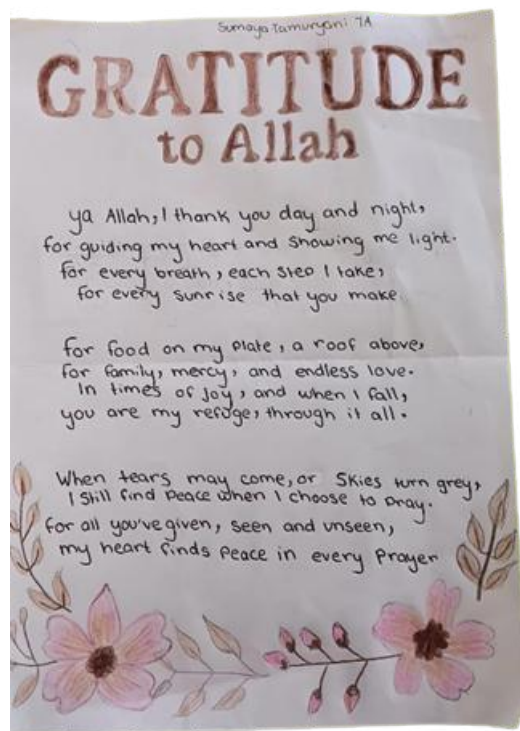 Sumaya Tamuryani 7A
GRATITUDE
to Allah
ya Allah, I thank you day and night,
for guiding my heart and showing me light.
for every breath, each step I take,
for every sunrise that you make.
for food on my plate, a roof above,
for family, mercy, and endless love.
In times of joy, and when I fall,
you are my refuge, through it all.
When tears may come, or skies turn grey,
I still find peace when I choose to pray.
for all you've given, seen and unseen,
my heart finds peace in every prayer